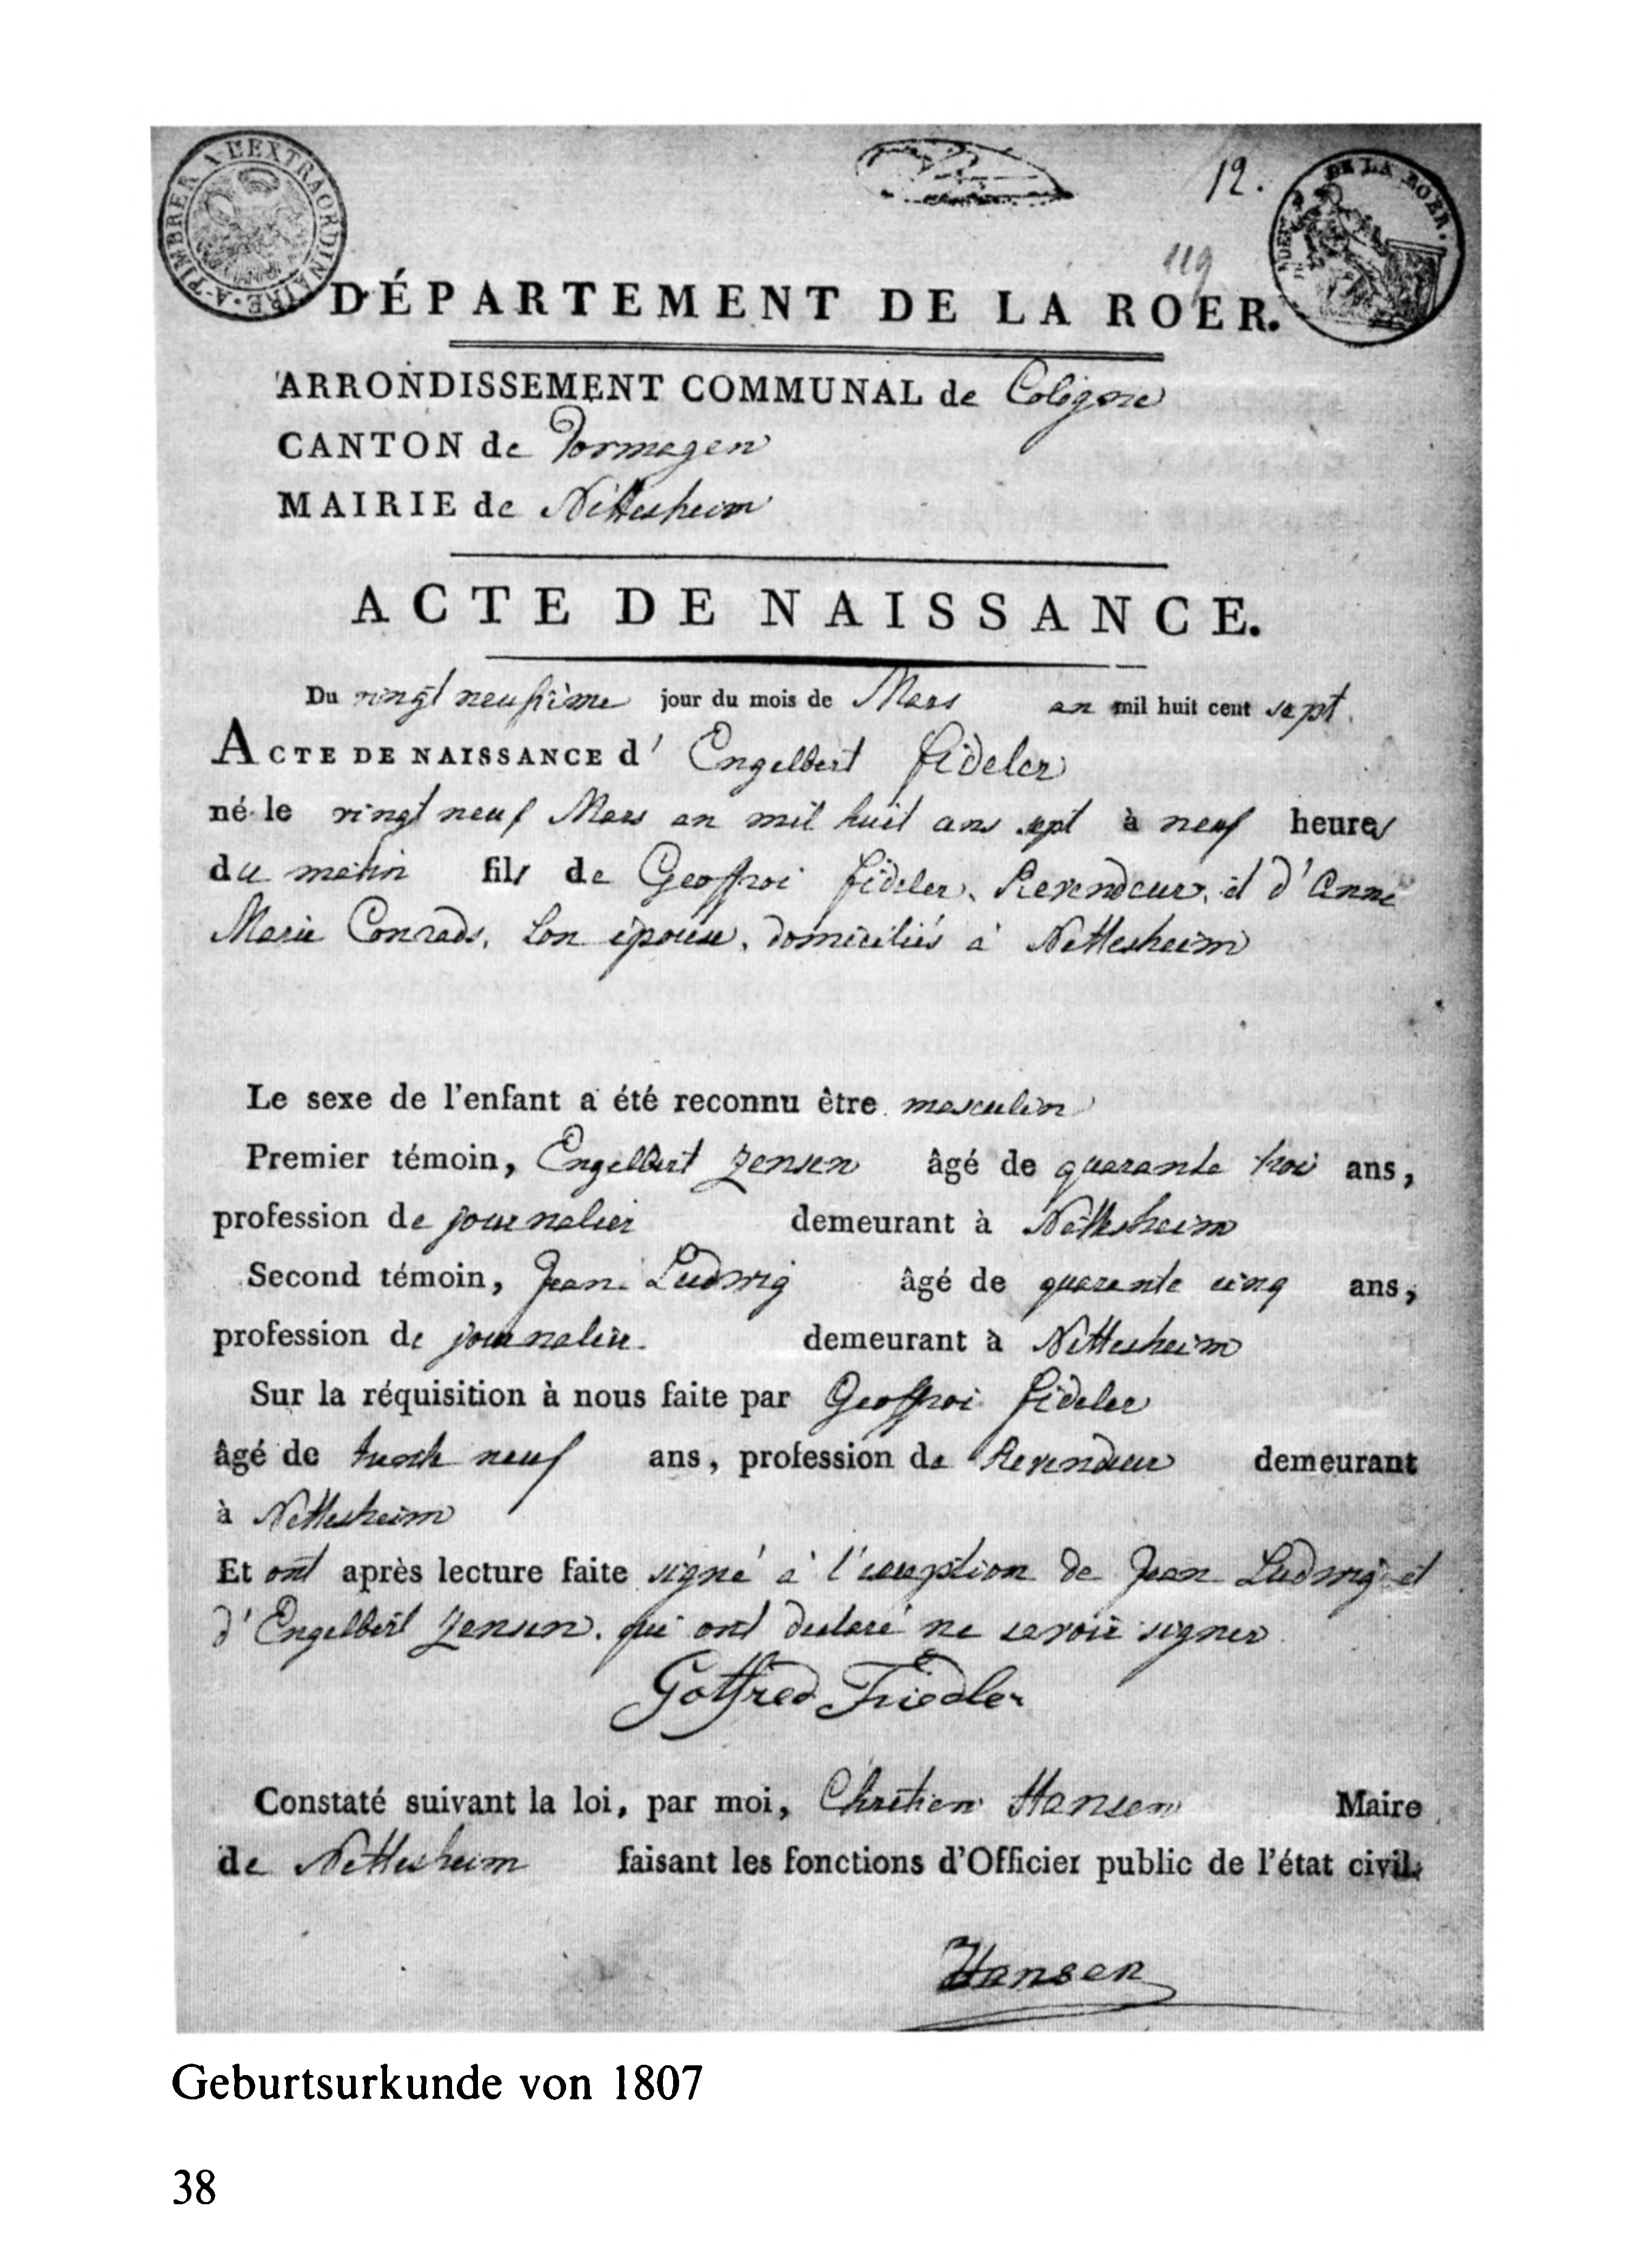 A TIMBRER A L'EXTRAORDINAIRE.
12.
DE LA ROER.
119
DÉPARTEMENT DE LA ROER.
ARRONDISSEMENT COMMUNAL de Cologne
CANTON de Dormagen
MAIRIE de Nettesheim
ACTE DE NAISSANCE.
Du vingt neufième jour du mois de Mars an mil huit cent sept.
ACTE DE NAISSANCE d' Engelbert fideler
né le vingt neuf Mars an mil huit ans sept à neuf heures
du matin fils de Geoffroi fideler, Revendeur, et d'Anne
Marie Conrads, son épouse, domiciliés à Nettesheim
Le sexe de l'enfant a été reconnu être masculin
Premier témoin, Engelbert Jensen âgé de quarante trois ans,
profession de journalier demeurant à Nettesheim
Second témoin, Jean Ludwig âgé de quarante cinq ans,
profession de journalier demeurant à Nettesheim
Sur la réquisition à nous faite par Geoffroi fideler
âgé de trente neuf ans, profession de Revendeur demeurant
à Nettesheim
Et ont après lecture faite signé à l'exception de Jean Ludwig et
d'Engelbert Jensen, qui ont declaré ne savoir signer
Gotfred Friedler
Constaté suivant la loi, par moi, Chretien Hansen Maire
de Nettesheim faisant les fonctions d'Officier public de l'état civil.
Hansen
Geburtsurkunde von 1807
38